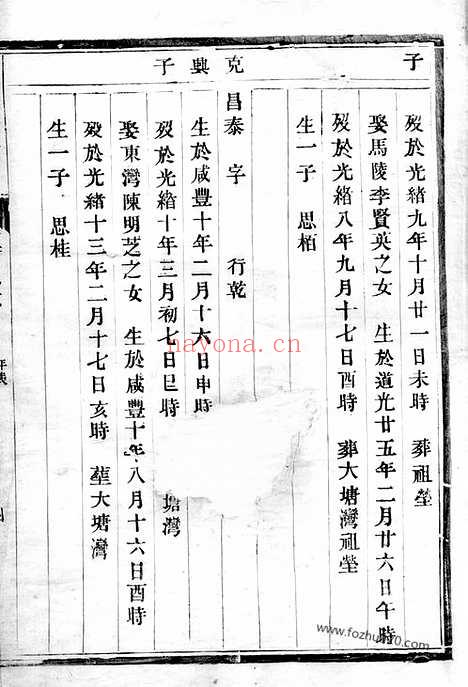 子
歿於光緒九年十月廿一日未時 葬祖塋
娶馬陵李賢英之女 生於道光廿五年二月廿六日午時
歿於光緒八年九月十七日酉時 葬大塘灣祖塋
生一子 思栢
克興子
昌泰字 行乾
生於咸豐十年二月十六日申時
歿於光緒十年三月初七日巳時 塘灣
娶東灣陳明芝之女 生於咸豐十年八月十六日酉時
歿於光緒十三年二月十七日亥時 塟大塘灣
生一子 思桂
nayona.cn
www.fozhu920.com